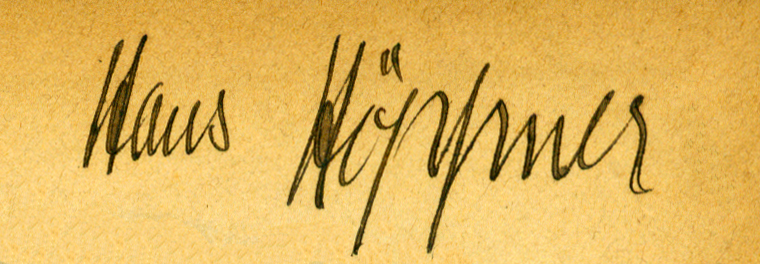 Hans Höpfner